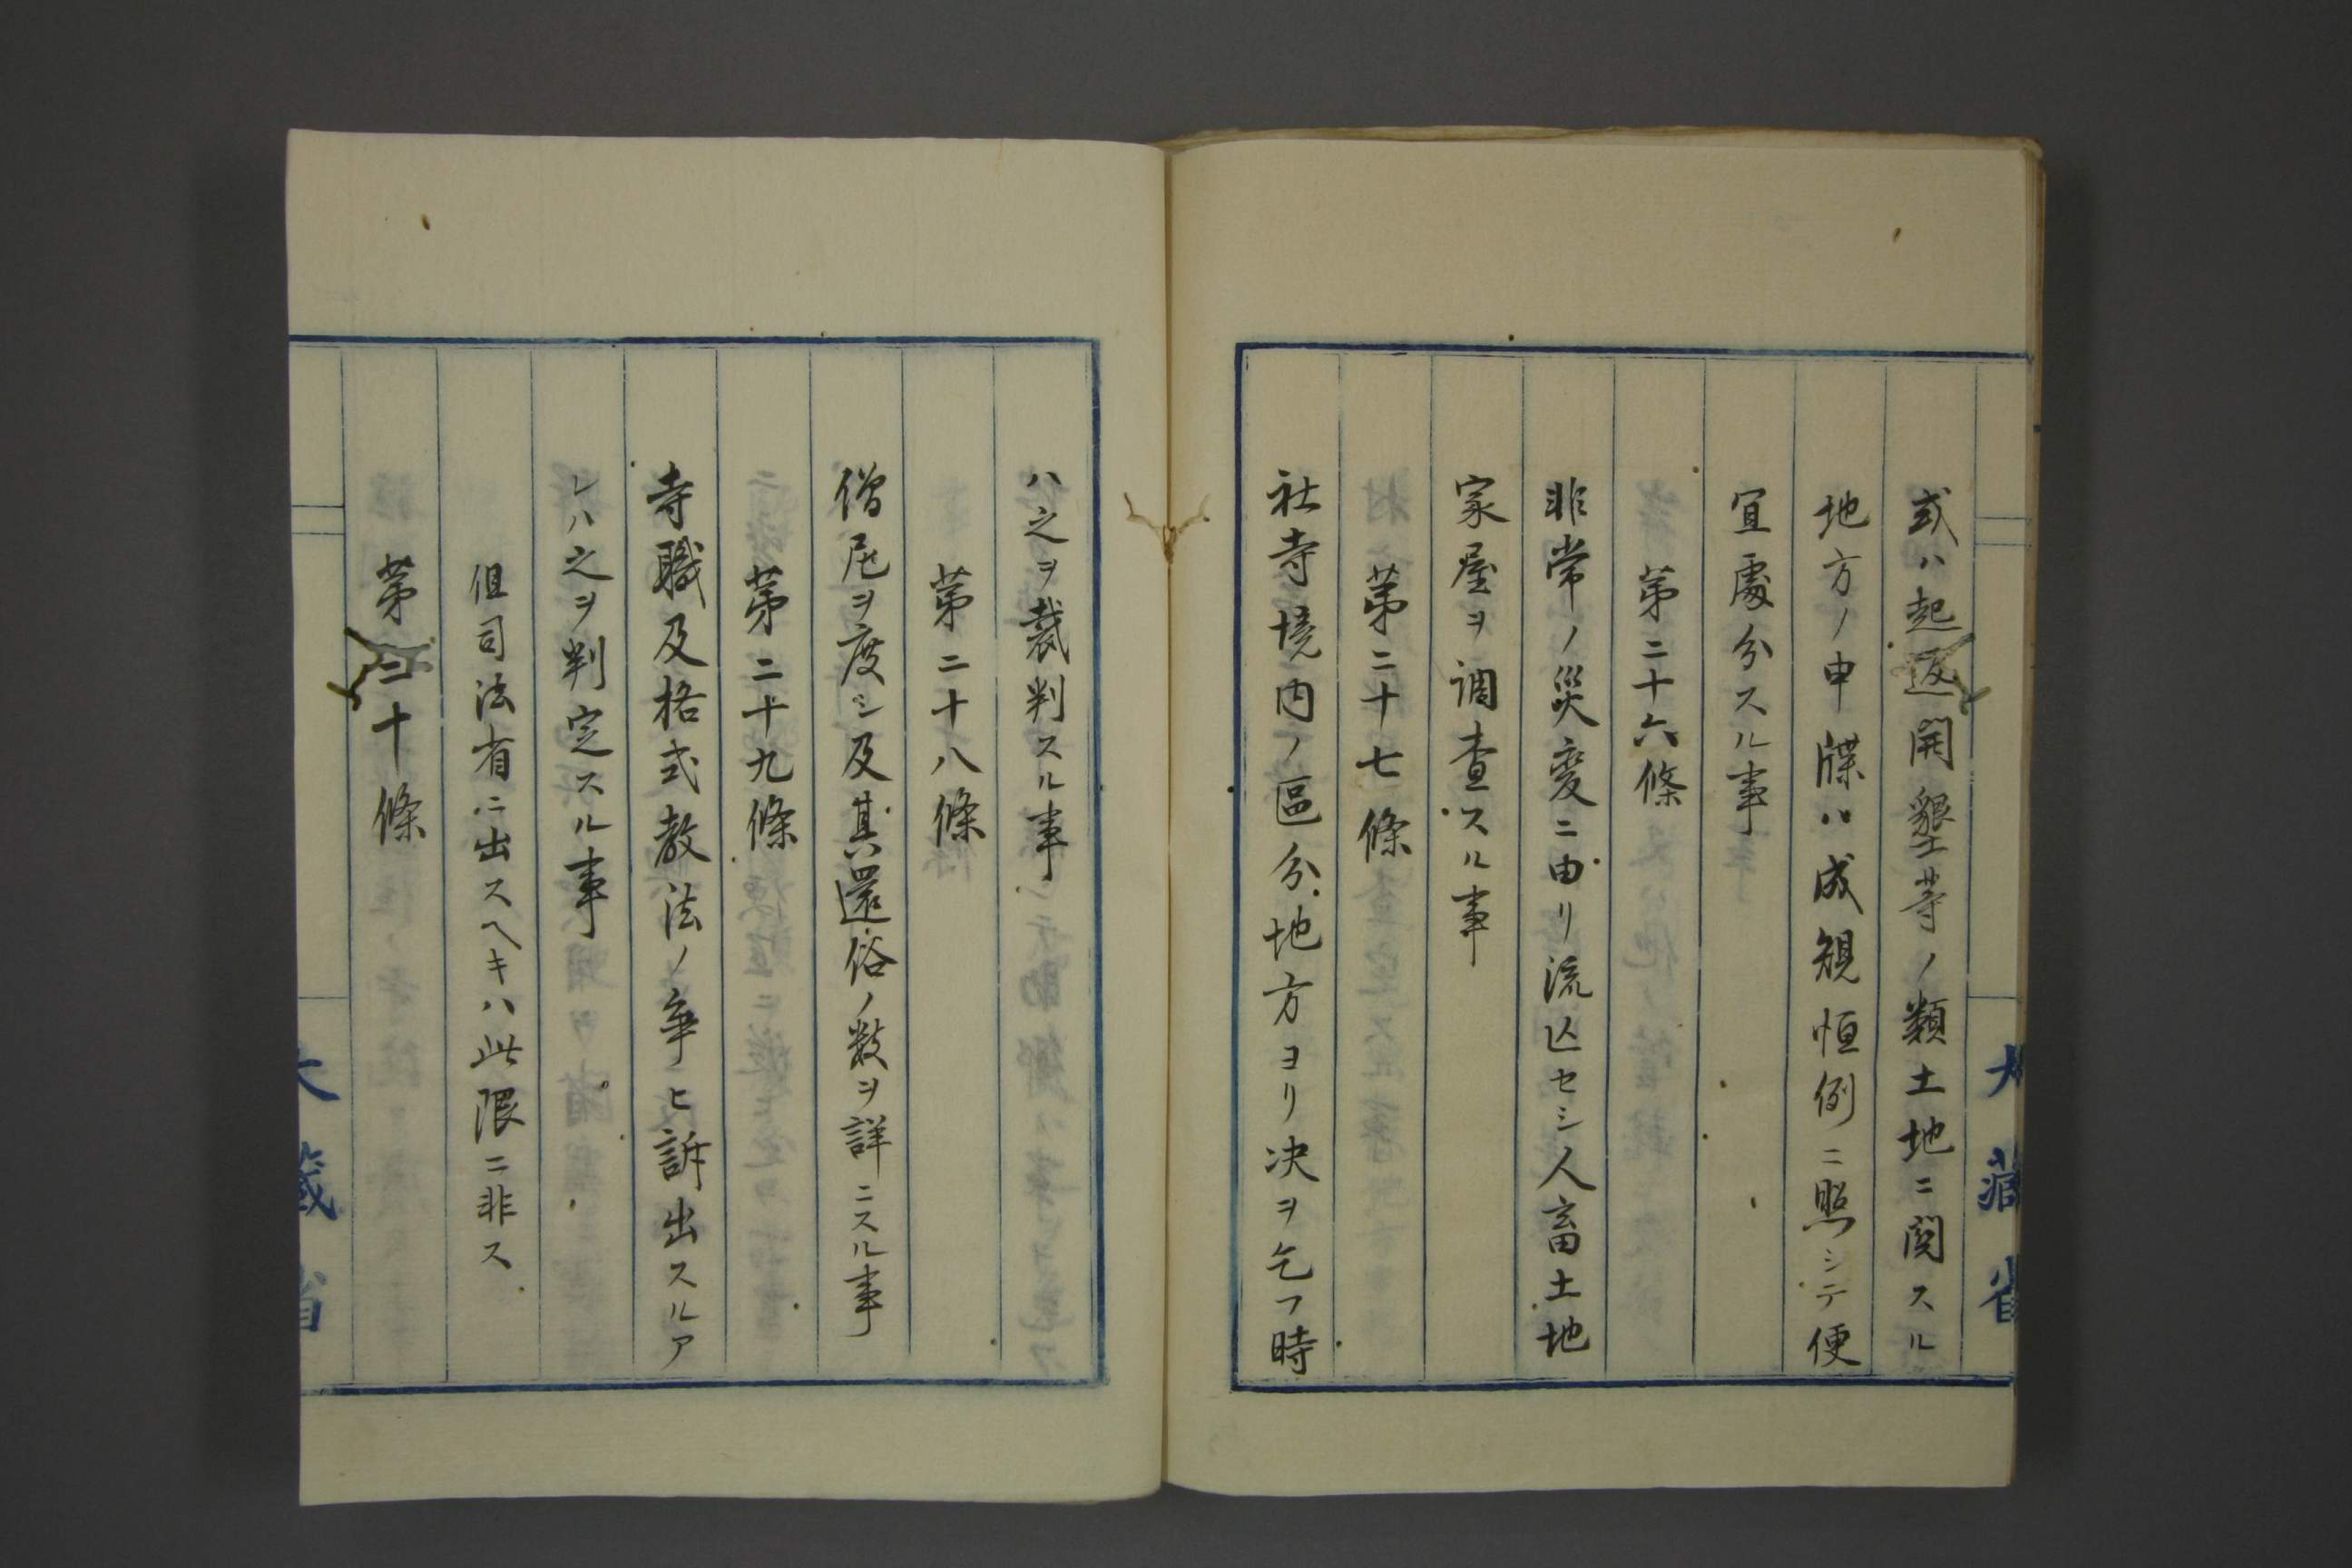 或ハ起返開墾等ノ類土地ニ関スル
地方ノ申牒ハ成規恒例ニ照シテ便
宜處分スル事
第二十六條
非常ノ災変ニ由リ流亡セシ人畜土地
家屋ヲ調査スル事
第二十七條
社寺境内ノ區分地方ヨリ决ヲ乞フ時
大藏省
ハ之ヲ裁判スル事
第二十八條
僧尼ヲ度シ及其還俗ノ数ヲ詳ニスル事
第二十九條
寺職及格式教法ノ争ヒ訴出スルア
レハ之ヲ判定スル事
但司法省ニ出スヘキハ此限ニ非ス
第三十條
大藏省